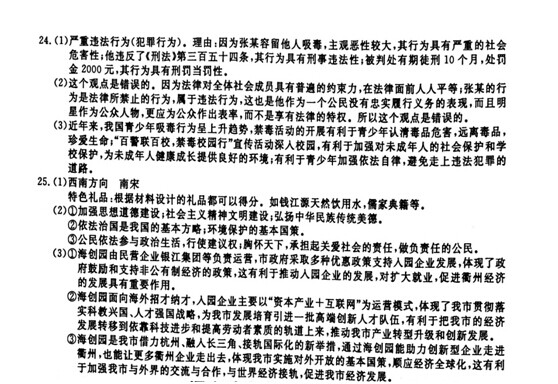 24.(1)严重违法行为(犯罪行为)。理由:因为张某容留他人吸毒,主观恶性较大,其行为具有严重的社会
危害性;他违反了《刑法》第三百五十四条,其行为具有刑事违法性;被判处有期徒刑10个月,处罚
金2000元,其行为具有刑罚当罚性。
(2)这个观点是错误的。因为法律对全体社会成员具有普遍的约束力,在法律面前人人平等;张某的行
为是法律所禁止的行为,属于违法行为,这也是他作为一个公民没有忠实履行义务的表现,而且明
星作为公众人物,更应为公众作出表率,而不是享有法律的特权。所以这个观点是错误的。
(3)近年来,我国青少年吸毒行为呈上升趋势,禁毒活动的开展有利于青少年认清毒品危害,远离毒品,
珍爱生命;“百警联百校,禁毒校园行”宣传活动深入校园,有利于加强对未成年人的社会保护和学
校保护,为未成年人健康成长提供良好的环境;有利于青少年加强依法自律,避免走上违法犯罪的
道路。
25.(1)西南方向 南宋
特色礼品:根据材料设计的礼品都可以得分。如钱江源天然饮用水,儒家典籍等。
(2)①加强思想道德建设;社会主义精神文明建设;弘扬中华民族传统美德。
②依法治国是我国的基本方略;环境保护的基本国策。
③公民依法参与政治生活,行使建议权;胸怀天下,承担起关爱社会的责任,做负责任的公民。
(3)①海创园由民营企业银江集团等负责运营,市政府采取多种优惠政策支持入园企业发展,体现了政
府鼓励和支持非公有制经济的政策,这有利于推动入园企业的发展,对扩大就业,促进衢州经济
的发展具有重要作用。
②海创园面向海外招才纳才,入园企业主要以“资本产业+互联网”为运营模式,体现了我市贯彻落
实科教兴国、人才强国战略,为我市发展培育引进一批高端创新人才队伍,有利于把我市的经济
发展转移到依靠科技进步和提高劳动者素质的轨道上来,推动我市产业转型升级和创新发展。
③海创园是我市借力杭州、融入长三角、接轨国际化的新举措,通过海创园能助力创新型企业走进
衢州,也能让更多衢州企业走出去,体现我市实施对外开放的基本国策,顺应经济全球化,这有利
于加强我市与外界的交流与合作,与世界经济接轨,促进我市经济发展。